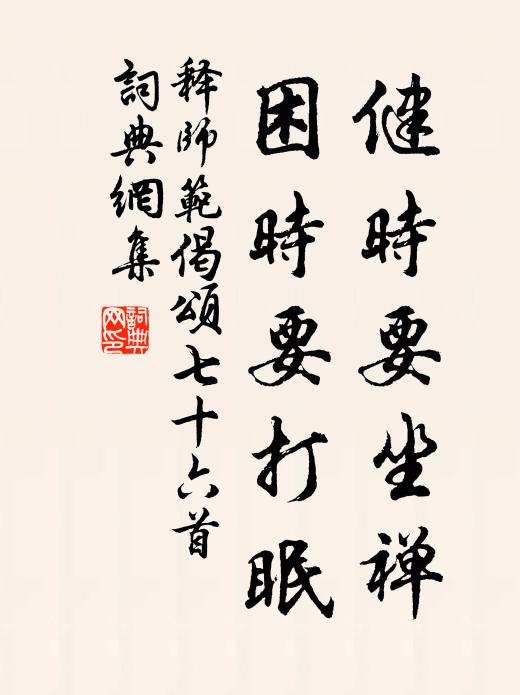 健時要坐禅
困時要打眠
释師範偈頌七十六首
詞典網集
詞典网印